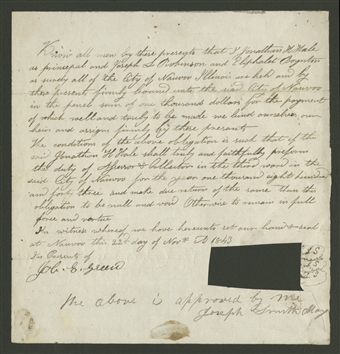 Know all men by these presents that I Jonathan H Hale
as principal and Joseph L Robinson and Eliphalet Boynton
as surety all of the City of Nauvoo Illinois are held and by
these present firmly bound unto the said City of Nauvoo
in the penal sum of one thousand dollars for the payment
of which well and truly to be made we bind ourselves our
heirs and assigns firmly by these presents
The conditions of the above obligation is such that if the
said Jonathan H Hale shall truly and faithfully perform
the duty of Assessor & Collector in the ward in the
said City of Nauvoo for the year one thousand eight hundred
and forty three and make due return of the same then this
obligation to be null and void Otherwise to remain in full
force and virtue
In witness whereof we have hereunto set our hand & seal
at Nauvoo this 22d day of Novr AD 1843
In Presents of
The above is approved by me
Joseph Smith Mayor